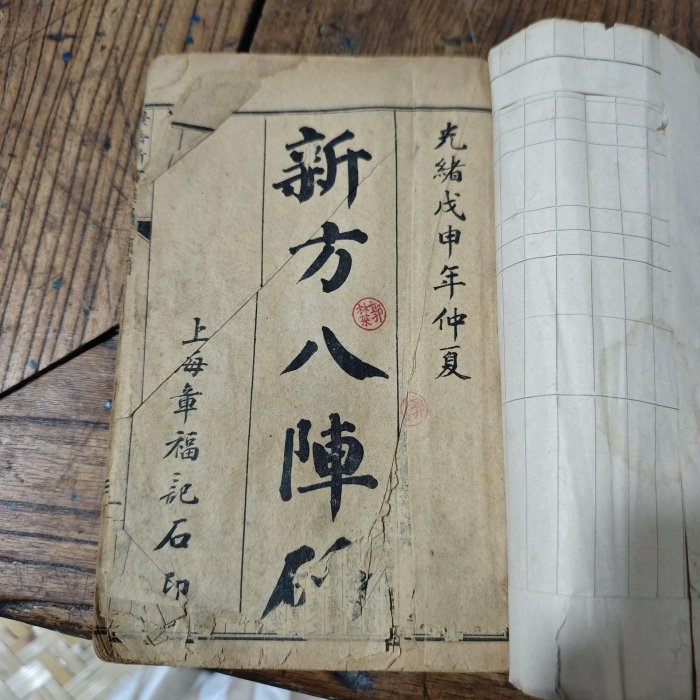 光緒戊申年仲夏
新方八陣砭
上海章福記石印